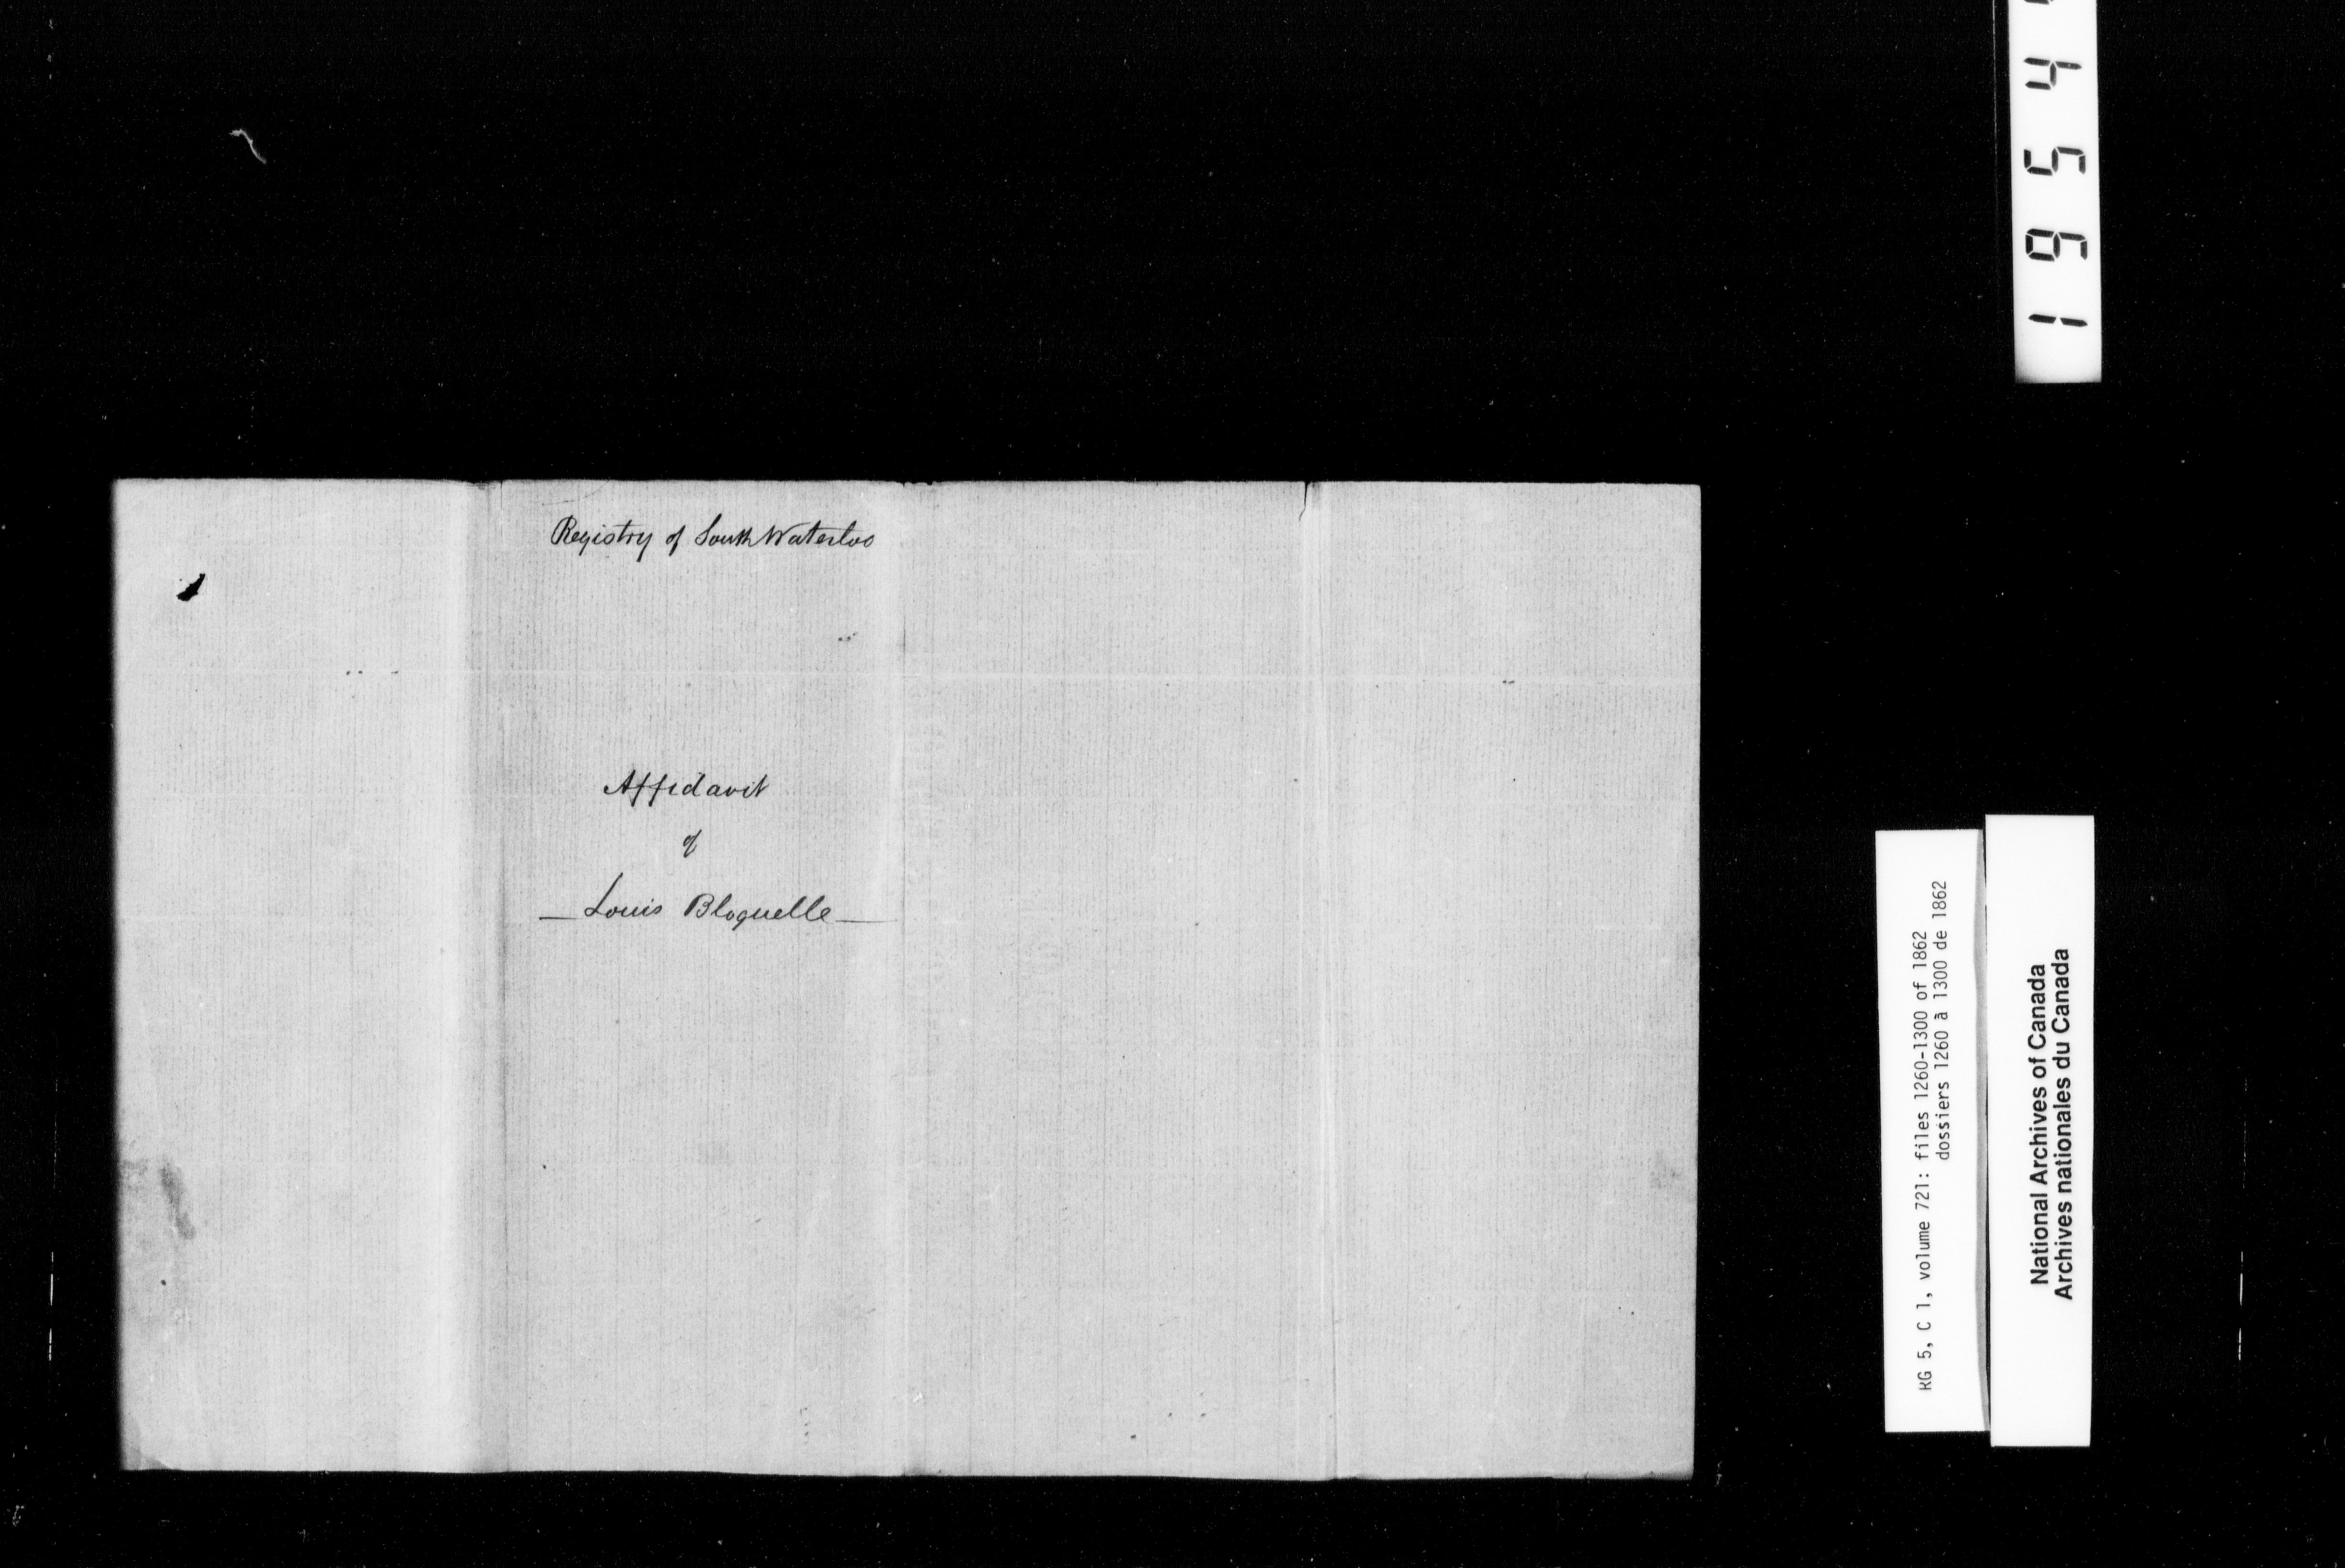 Registry of South Waterloo
Affidavit
of
Louis Bloquelle
RG 5, C 1, volume 721: files 1260-1300 of 1862
dossiers 1260 à 1300 de 1862
National Archives of Canada
Archives nationales du Canada
1954